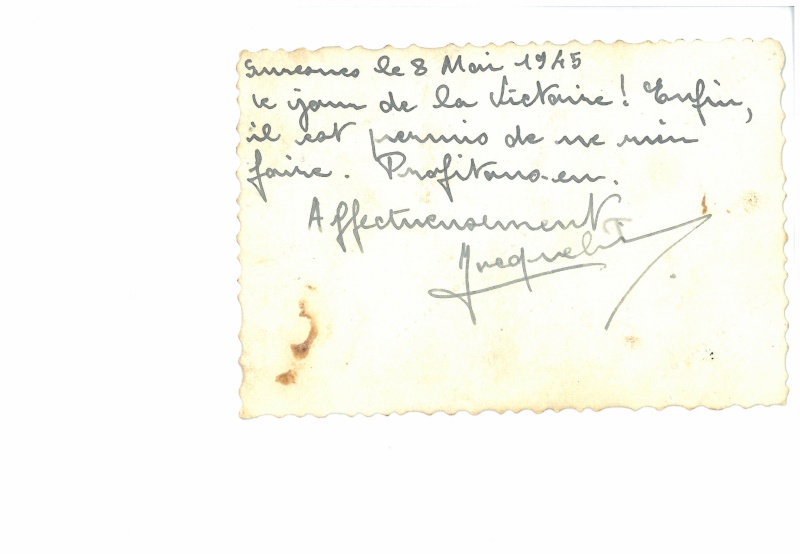 Suresnes le 8 Mai 1945
le jour de la Victoire! Enfin,
il est permis de ne rien
faire. Profitons-en.
Affectueusement